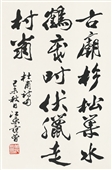 古廟杉松巢水
鶴歲时伏臘走
村翁
杜甫詩句
秋日